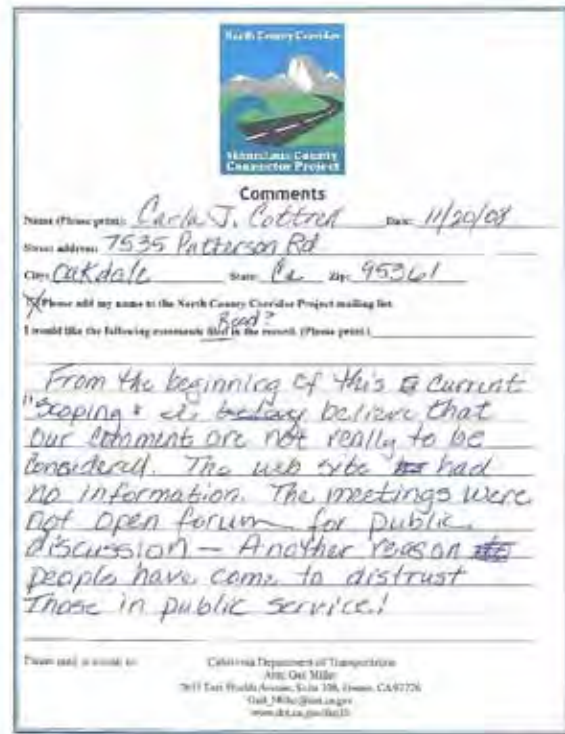 North County Corridor
Stanislaus County
Connector Project
Comments
Name (Please print): Carla J. Cottrell Date: 11/20/08
Street address: 7535 Patterson Rd
City: Oakdale State: Ca Zip: 95361
Please add my name to the North County Corridor Project mailing list.
Read?
I would like the following comments filed in the record. (Please print.)
From the beginning of this current
"Scoping" I believe that
our comment are not really to be
considered. The web site had
no information. The meetings were
not open forum for public
discussion — Another reason
people have come to distrust
Those in public service!
California Department of Transportation
Attn: Gail Miller
Gail_Miller@dot.ca.gov